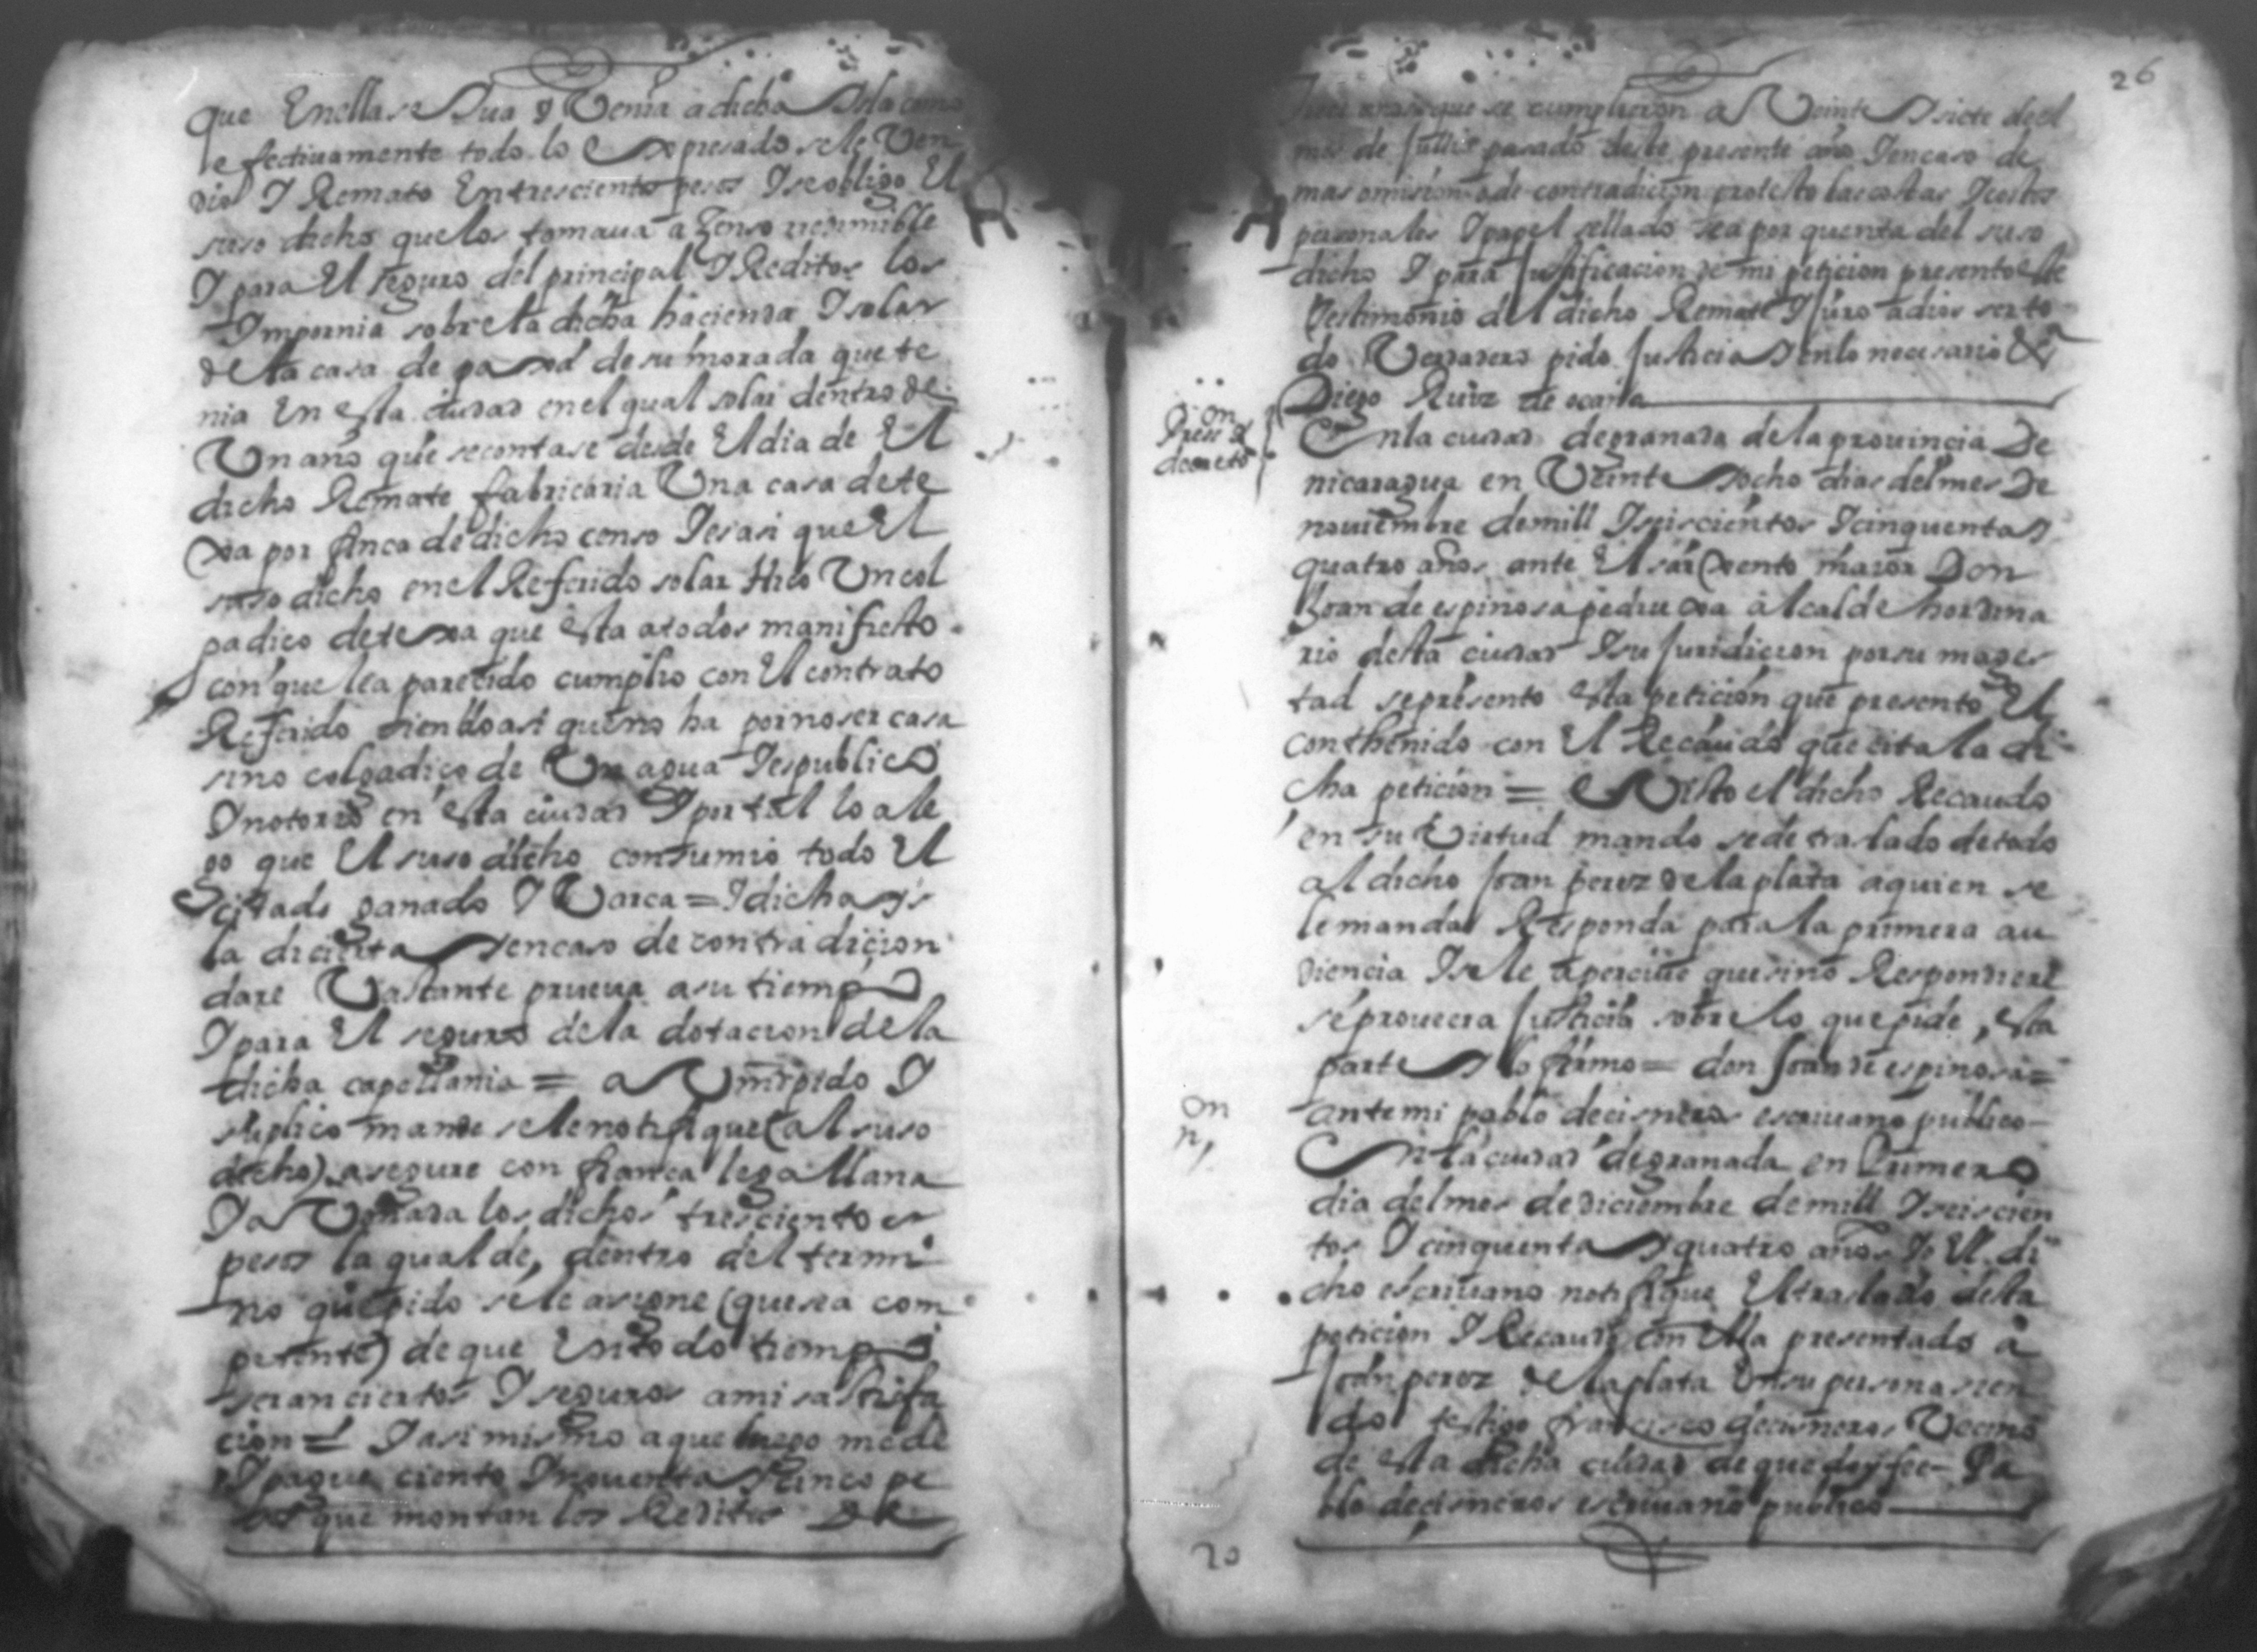 que En ella se Iua y Venia a dicha Isla como
e fectiuamente todo lo Expresado se le Ven
dio I Remato En trescientos pesos I se obligo El
suso dicho que los tomaua a Zenso redimible
I para El seguro del principal I Reditos los
Imponia sobre la dicha hacienda I solar
de la casa de paxa de su morada que te
nia En esta ciudad en el qual solar dentro de
Un año que se contase desde El dia de El
dicho Remate fabricaria Una casa de te
xa por finca de dicho censo I es asi que El
suso dicho en el Referido solar Hiço Un col
gadiço de texa que Esta a todos manifiesto
con que le a parecido cumplio con El contrato
Referido siendo asi que no ha por no ser casa
sino colgadiço de Un agua I es publico
I notorio en Esta ciudad I por tal lo ale
go que El suso dicho consumio todo El
citado ganado I Varca = I dicha ys
la dicienta I en caso de contradicion
dare Vastante prueua a su tiempo
I para El seguro de la dotacion de la
dicha capellania = a Vmd pido I
suplico mande se le notifique (al suso
dicho) asegure con fiança lega llana
I a Vonada los dichos trescientos
pesos la qual de, dentro del termi
no que pido se le asigne (que sea com
petente) de que En todo tiempo
seran ciertos I seguros a mi satisfa
cion = I asi mismo a que luego me de
I pague ciento I nouenta I cinco pe
sos que montan los Reditos de
26
trece años que se cumplieron a Veinte I siete de el
mes de Jullio pasado deste presente año I en caso de
mas omision o de contradicion protesto las costas I costos
personales I papel sellado sea por quenta del suso
dicho I para Justificacion de mi peticion presento este
Testimonio del dicho Remate I Juro a dios ser to
do Verdadero pido Justicia I en lo necesario &ª
Diego Ruiz de ocaña
on
Pres y
decreto
En la ciudad de granada de la prouincia De
nicaragua en Veinte I ocho dias del mes De
nouiembre de mill I seiscientos I cinquenta I
quatro años ante El sarxento maior Don
Joan de espinosa pedruxa alcalde hordina
rio desta ciudad I su Juridicion por su mages
tad se presento Esta peticion que presento El
conthenido con El Recaudo que cita la di
cha peticion = I Visto el dicho Recaudo
en su Virtud mando se de traslado de todo
al dicho Joan perez de la plata a quien se
le manda Responda para la primera au
diencia I se le aperciue que si no Respondiere
se proueera Justicia sobre lo que pide, esta
parte I lo firmo = don Joan de espinosa =
ante mi pablo de cisneros escriuano publico
on
n,
En la ciudad de granada en Primero
dia del mes de diciembre de mill I seiscien
tos I cinquenta I quatro años Io El di
cho escriuano notifique El traslado desta
peticion I Recaudo con Ella presentado a
Joan perez de la plata En su persona sien
do testigo francisco de cisneros Vecino
de Esta dicha ciudad de que doy fee = Pa
blo de cisneros escriuano publico
20